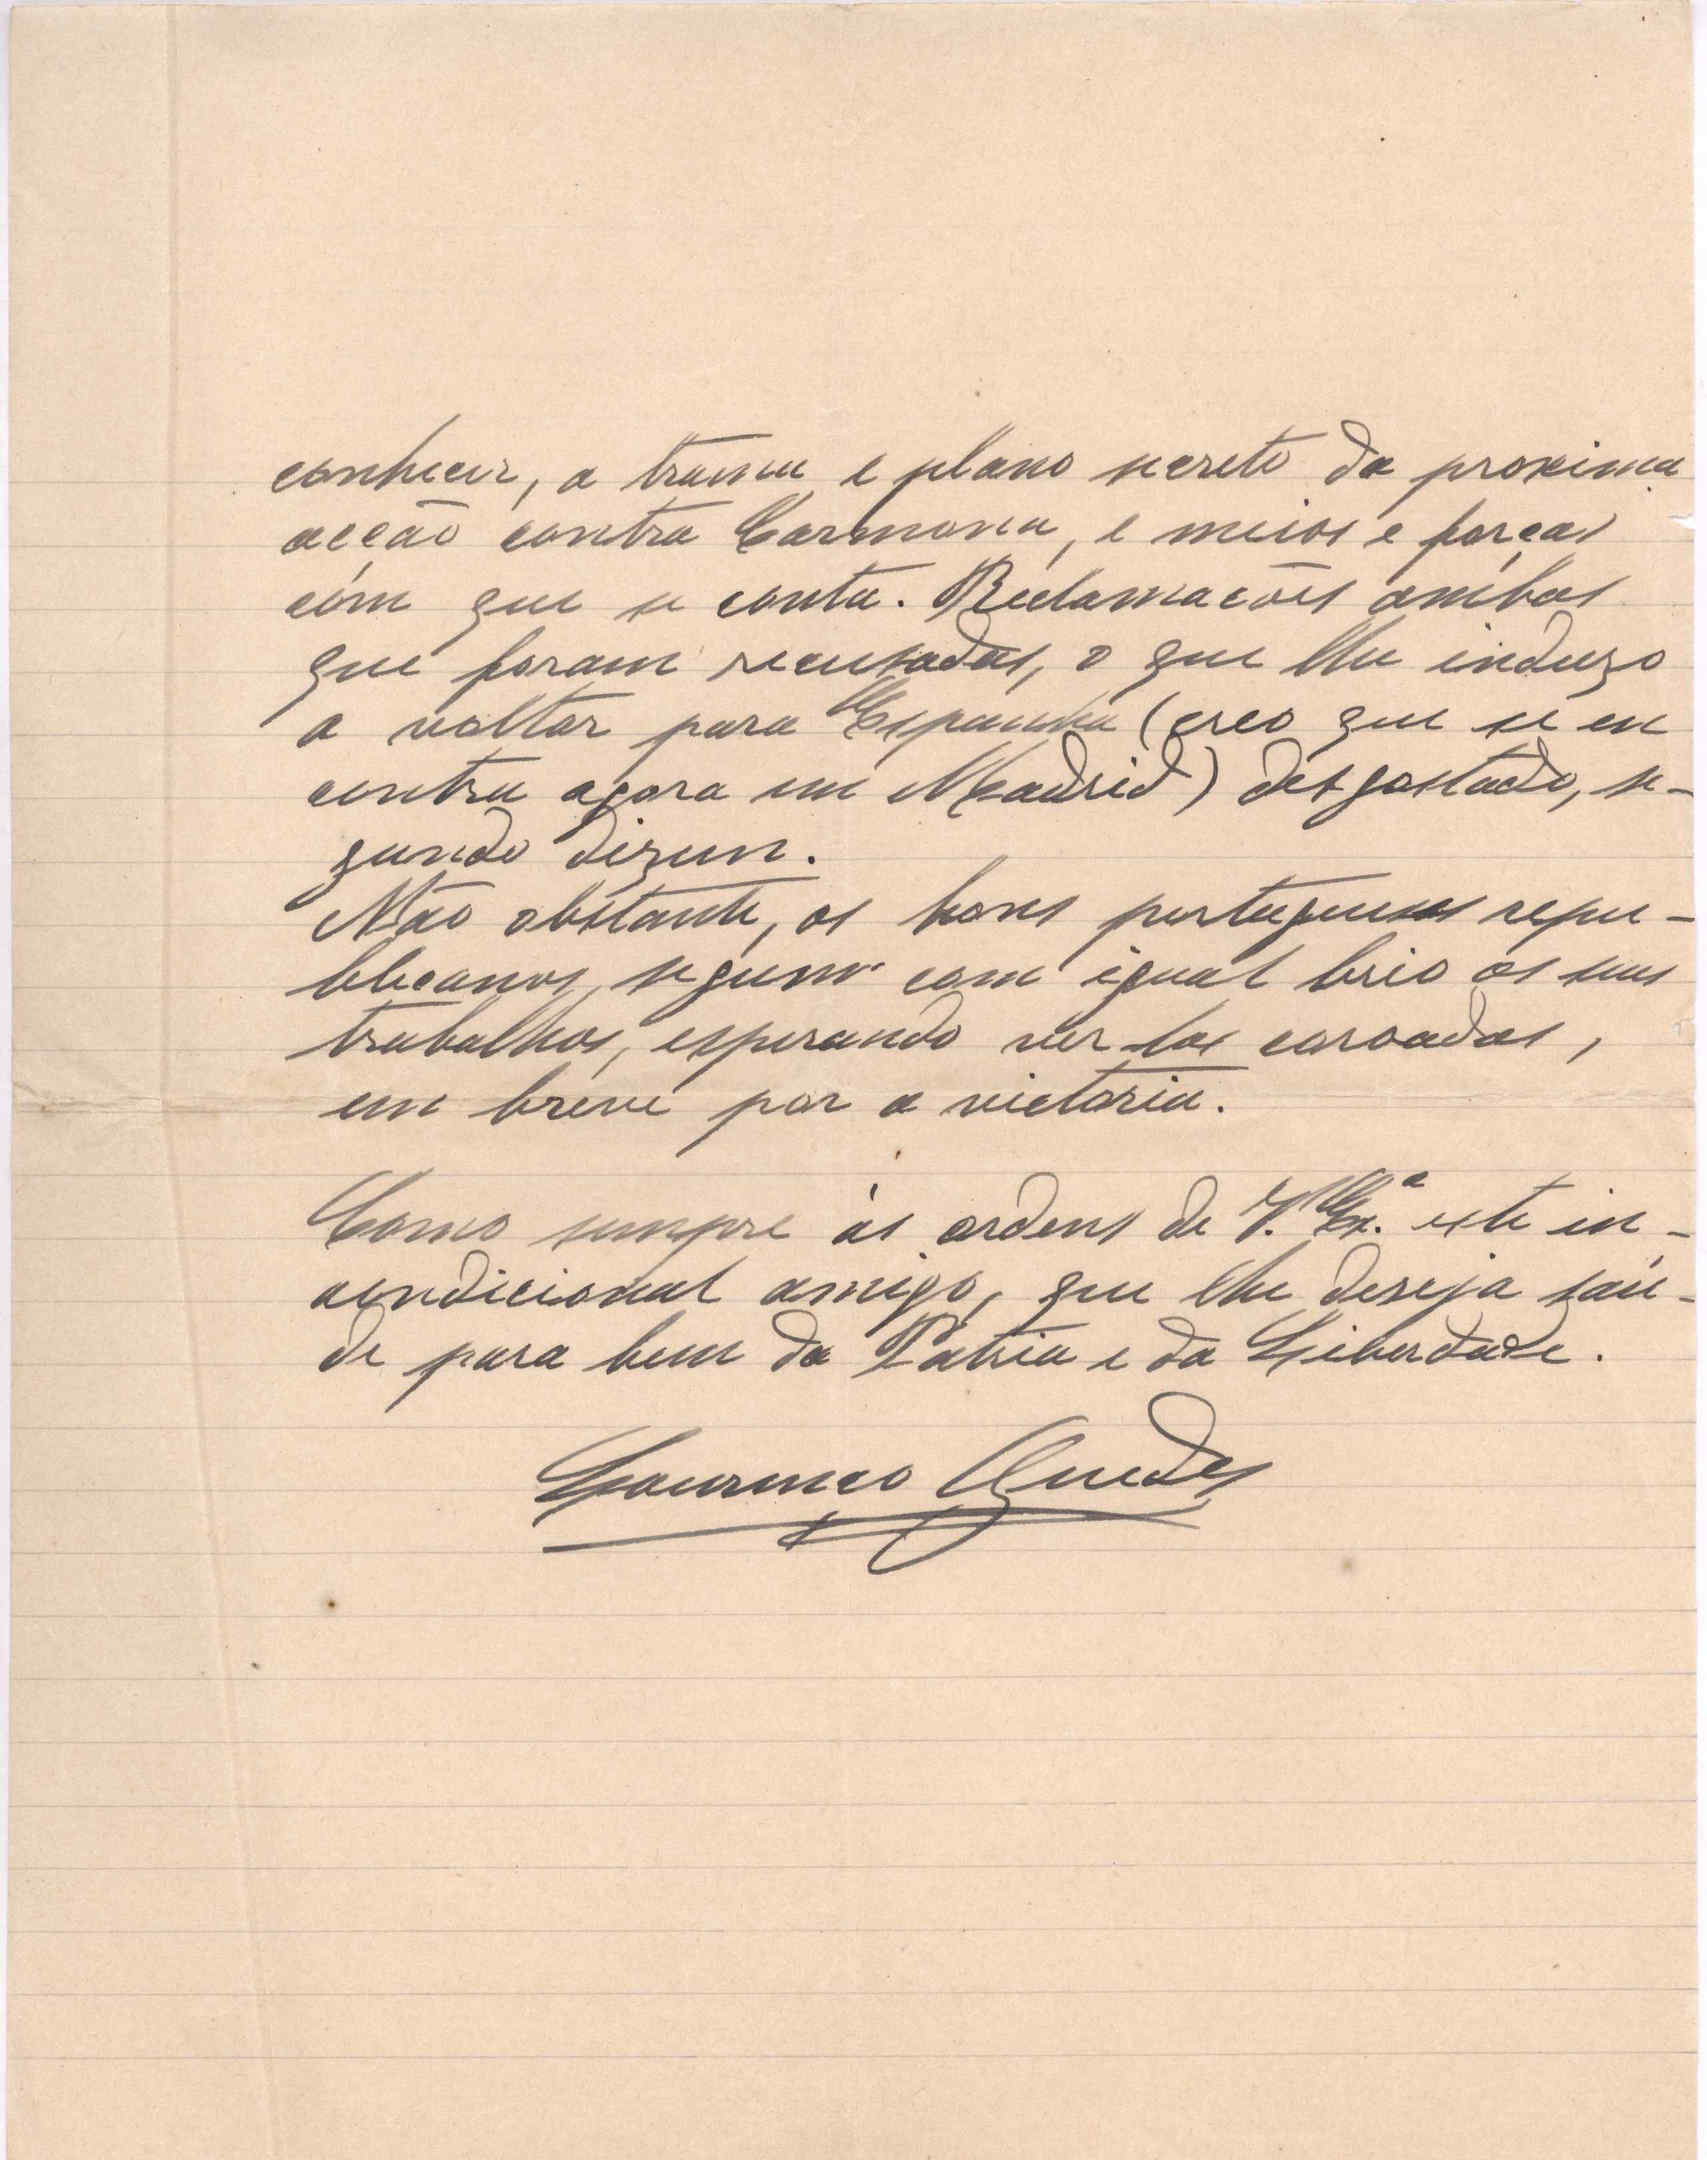 conhecer, a trama e plano secreto da proxima
acção contra Carmona, e meios e forças
com que se conta. Reclamações ambas
que foram recusadas, o que lhe induzo
a voltar para Espanha (creo que se en
contra agora em Madrid) desgostado, se-
gundo dizem.
Não obstante, os bons portugueses repu-
blicanos, seguem com igual brio os seus
trabalhos, esperando ver los coroados,
em breve por a victoria.
Como sempre ás ordens de V. Ex.ª este in-
condicional amigo, que lhe deseja saú-
de para bem da Pátria e da Liberdade.
Lourenco Guedes